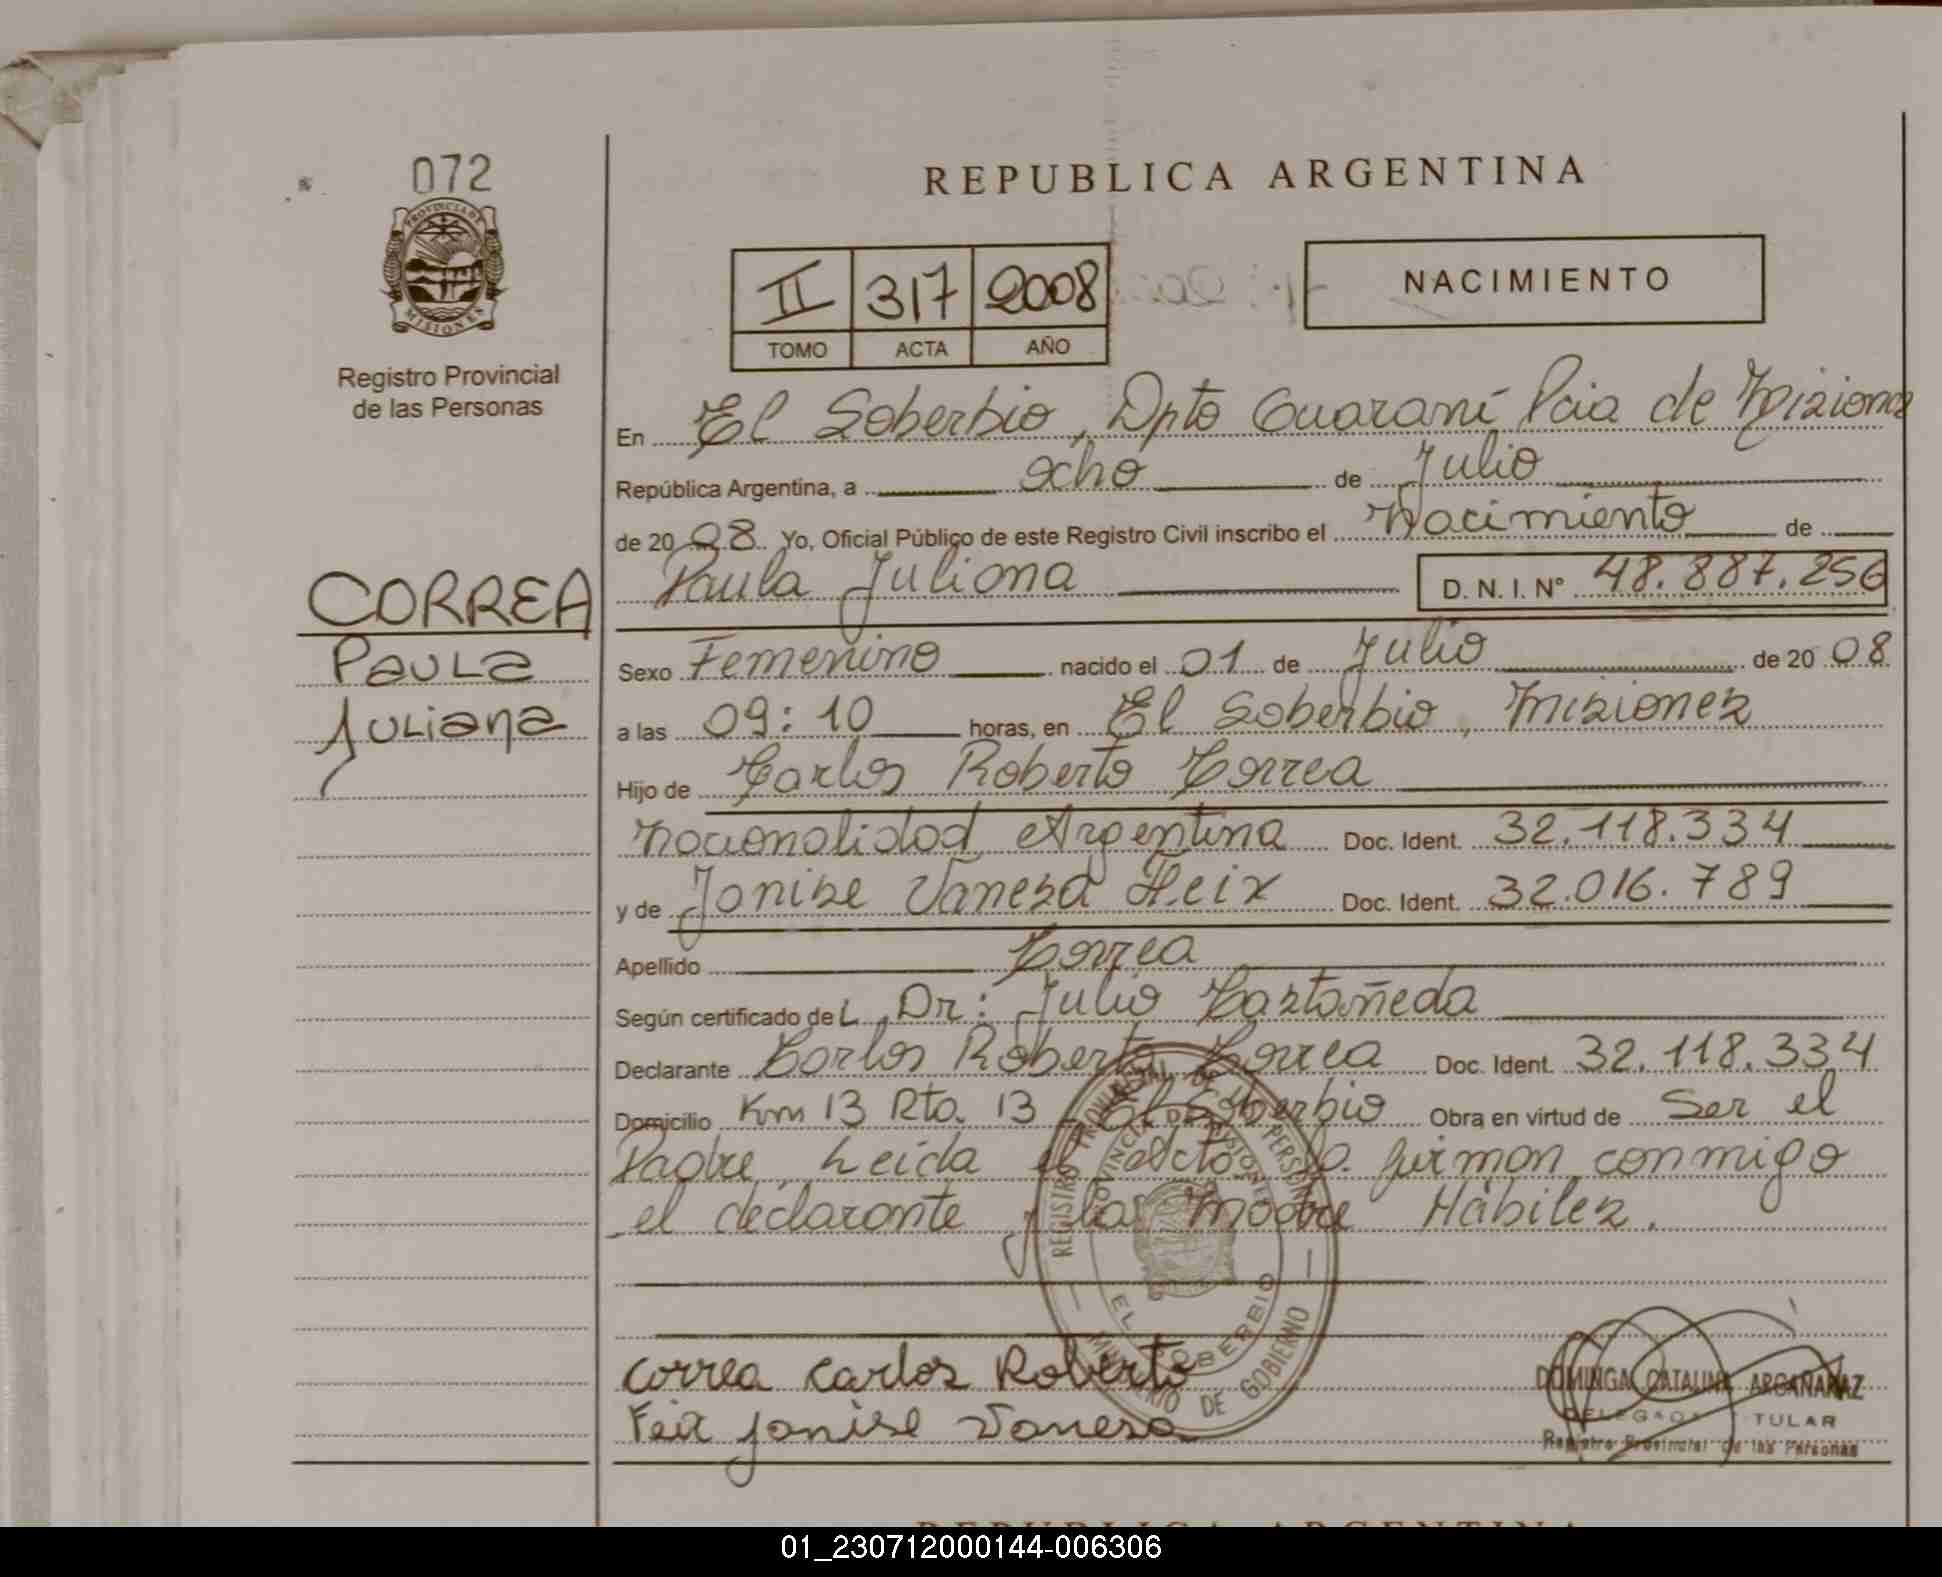 072
PROVINCIA DE
MISIONES
Registro Provincial
de las Personas
CORREA
Paula
Juliana
REPUBLICA ARGENTINA
II 317 2008
TOMO ACTA AÑO
NACIMIENTO
En El Soberbio, Dpto Guaraní Pcia de Misiones
República Argentina, a ocho de Julio
de 20 08. Yo, Oficial Público de este Registro Civil inscribo el Nacimiento de
Paula Juliana D. N. I. Nº 48.887.256
Sexo Femenino nacido el 01 de Julio de 20 08
a las 09:10 horas, en El Soberbio, Misiones
Hijo de Carlos Roberto Correa
Nacionalidad Argentina Doc. Ident. 32.118.334
y de Janise Vanesa Feix Doc. Ident. 32.016.789
Apellido Correa
Según certificado del Dr: Julio Castañeda
Declarante Carlos Roberto Correa Doc. Ident. 32.118.334
Domicilio Km 13 Rta 13 El Soberbio Obra en virtud de Ser el
Padre, Leida el Acta, la firman conmigo
el declarante y la Madre Hábiles.
REGISTRO PROVINCIAL DE LAS PERSONAS
PROVINCIA DE MISIONES
EL SOBERBIO
MINISTERIO DE GOBIERNO
Correa Carlos Roberto
Feix Janise Vanesa
DOMINGA CATALINA ARGAÑARAZ
DELEGADA TITULAR
Registro Provincial de las Personas
REPUBLICA ARGENTINA
01_230712000144-006306